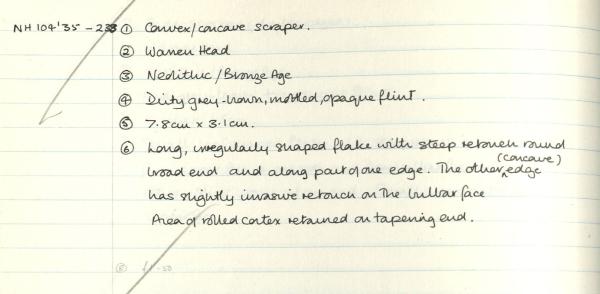 NH 104'35 - 238 ① Convex/concave scraper.
② Warren Head
③ Neolithic/Bronze Age
④ Dirty grey-brown, mottled, opaque flint.
⑤ 7.8cm x 3.1cm.
⑥ Long, irregularly shaped flake with steep retouch round
broad end and along part of one edge. The other (concave) edge
has slightly invasive retouch on the bulbar face
Area of rolled cortex retained on tapering end.